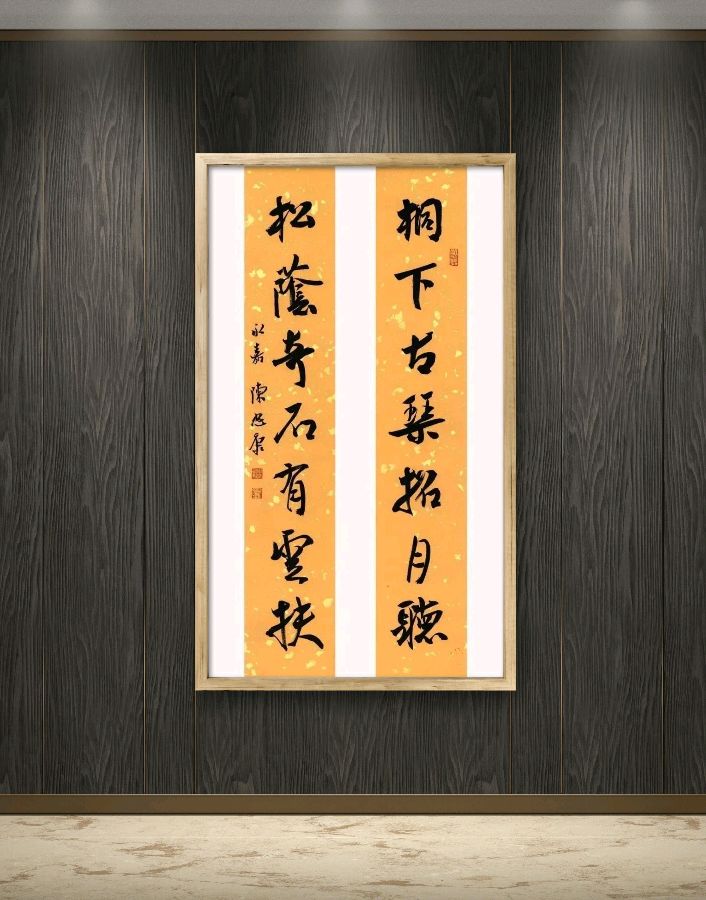 桐下古琴招月聽
松蔭奇石有雲扶
永嘉 陳忠康